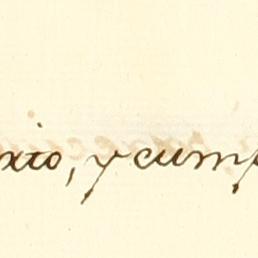 xto, y cump